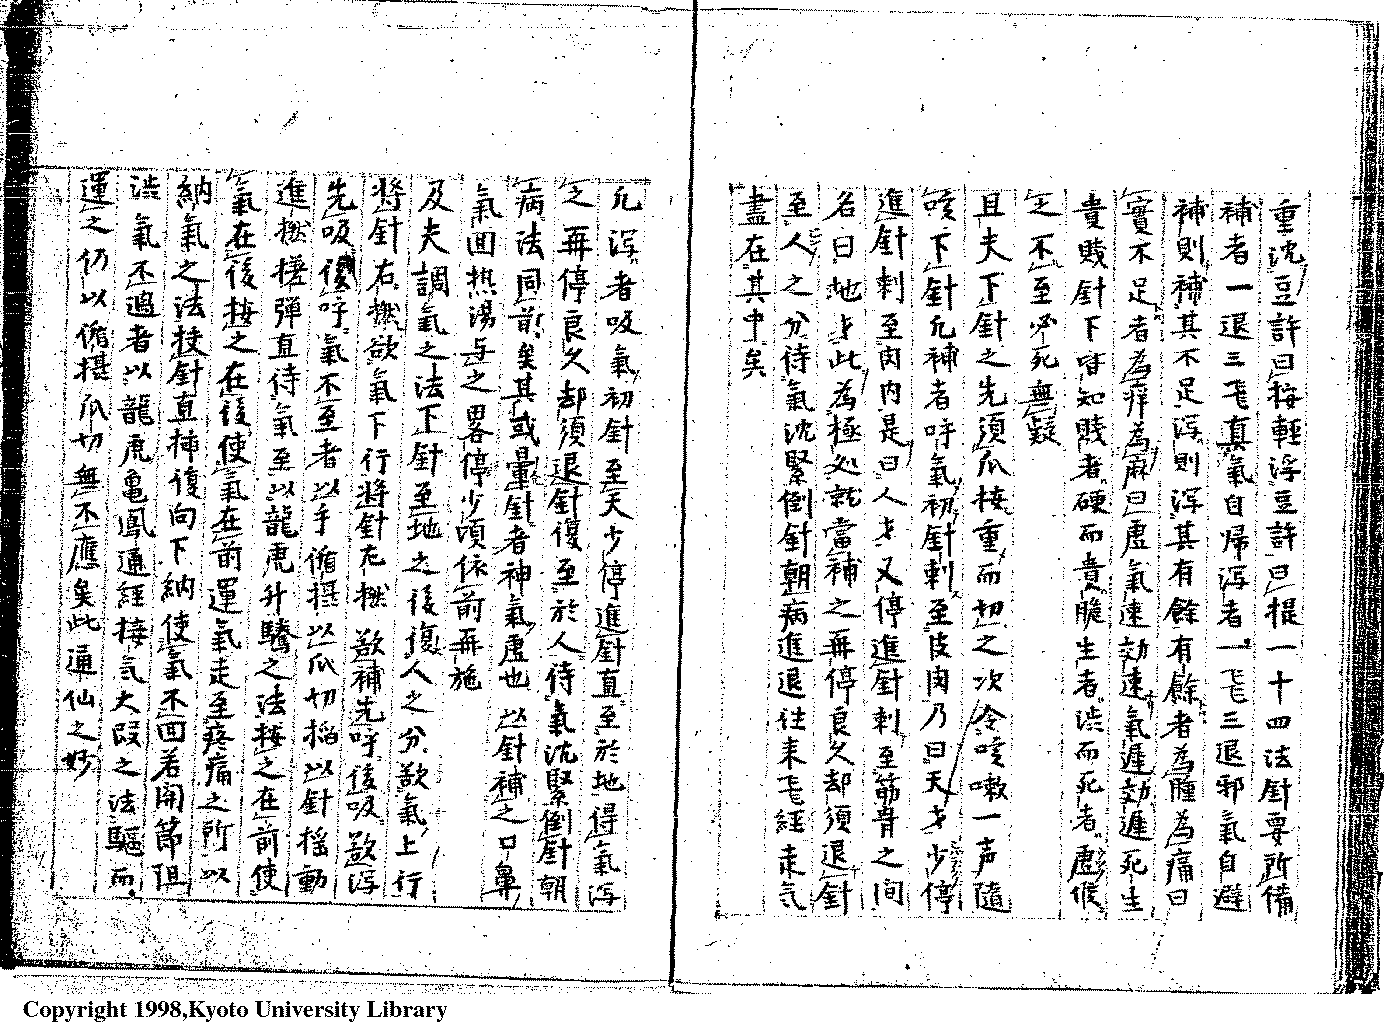 重沈豆許曰按輕浮豆許曰提一十四法針要所備
補者一退三飛真氣自帰瀉者一飛三退邪氣自避
補則補其不足瀉則瀉其有餘有餘者為腫為痛曰
實不足者為痒為麻曰虚氣速効速氣遲効遲死生
貴賤針下皆知賤者硬而貴脆生者渋而死者虚候
之不至必死無疑
且夫下針之先須爪按重而切之次令咳嗽一声隨
咳下針凡補者呼氣初針刺至皮肉乃曰天才少停
進針刺至肉内是曰人才又停進針刺至筋骨之間
名曰地才此為極処就當補之再停良久却須退針
至人之分待氣沈緊倒針朝病進退往来飛經走气
盡在其中矣
凡瀉者吸氣初針至天少停進針直至於地得氣瀉
之再停良久却須退針復至於人待氣沈緊倒針朝
病法同前矣其或暈針者神氣虚也以針補之口鼻
氣回热湯与之畧停少頃依前再施
及夫調氣之法下針至地之後復人之分欲氣上行
将針右撚欲氣下行将針左撚欲補先呼後吸欲瀉
先吸後呼氣不至者以手循摂以爪切掐以針揺動
進撚搓弾直待氣至以龍虎升騰之法按之在前使
氣在後按之在後使氣在前運氣走至疼痛之所以
納氣之法扶針直挿復向下納使氣不回若関節阻
渋氣不過者以龍虎亀鳳通経接気大段之法驅而
運之仍以循摂爪切無不應矣此通仙之妙
Copyright 1998,Kyoto University Library